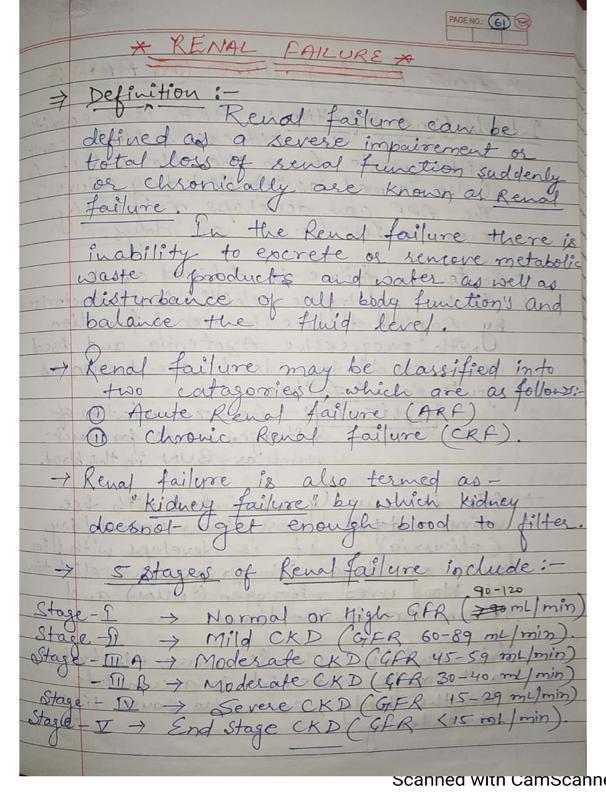 PAGE NO.: 61
* RENAL FAILURE *
⇒ Definition :-
Renal failure can be
defined as a severe impairement or
total loss of renal function suddenly
or chronically are known as Renal
failure.
In the Renal failure there is
inability to excrete or remove metabolic
waste products and water as well as
disturbance of all body function's and
balance the fluid level.
→ Renal failure may be classified into
two catagories, which are as follows:-
(I) Acute Renal failure (ARF)
(II) Chronic Renal failure (CRF).
→ Renal failure is also termed as -
"kidney failure" by which kidney
doesnot get enough blood to filter.
→ 5 stages of Renal failure include :-
90-120
Stage-I → Normal or High GFR (mL/min)
Stage-II → Mild CKD (GFR 60-89 mL/min).
Stage-III A → Moderate CKD (GFR 45-59 mL/min)
-III B → Moderate CKD (GFR 30-40 mL/min)
Stage-IV → Severe CKD (GFR 15-29 mL/min)
Stage-V → End Stage CKD (GFR <15 mL/min).
Scanned with CamScanne